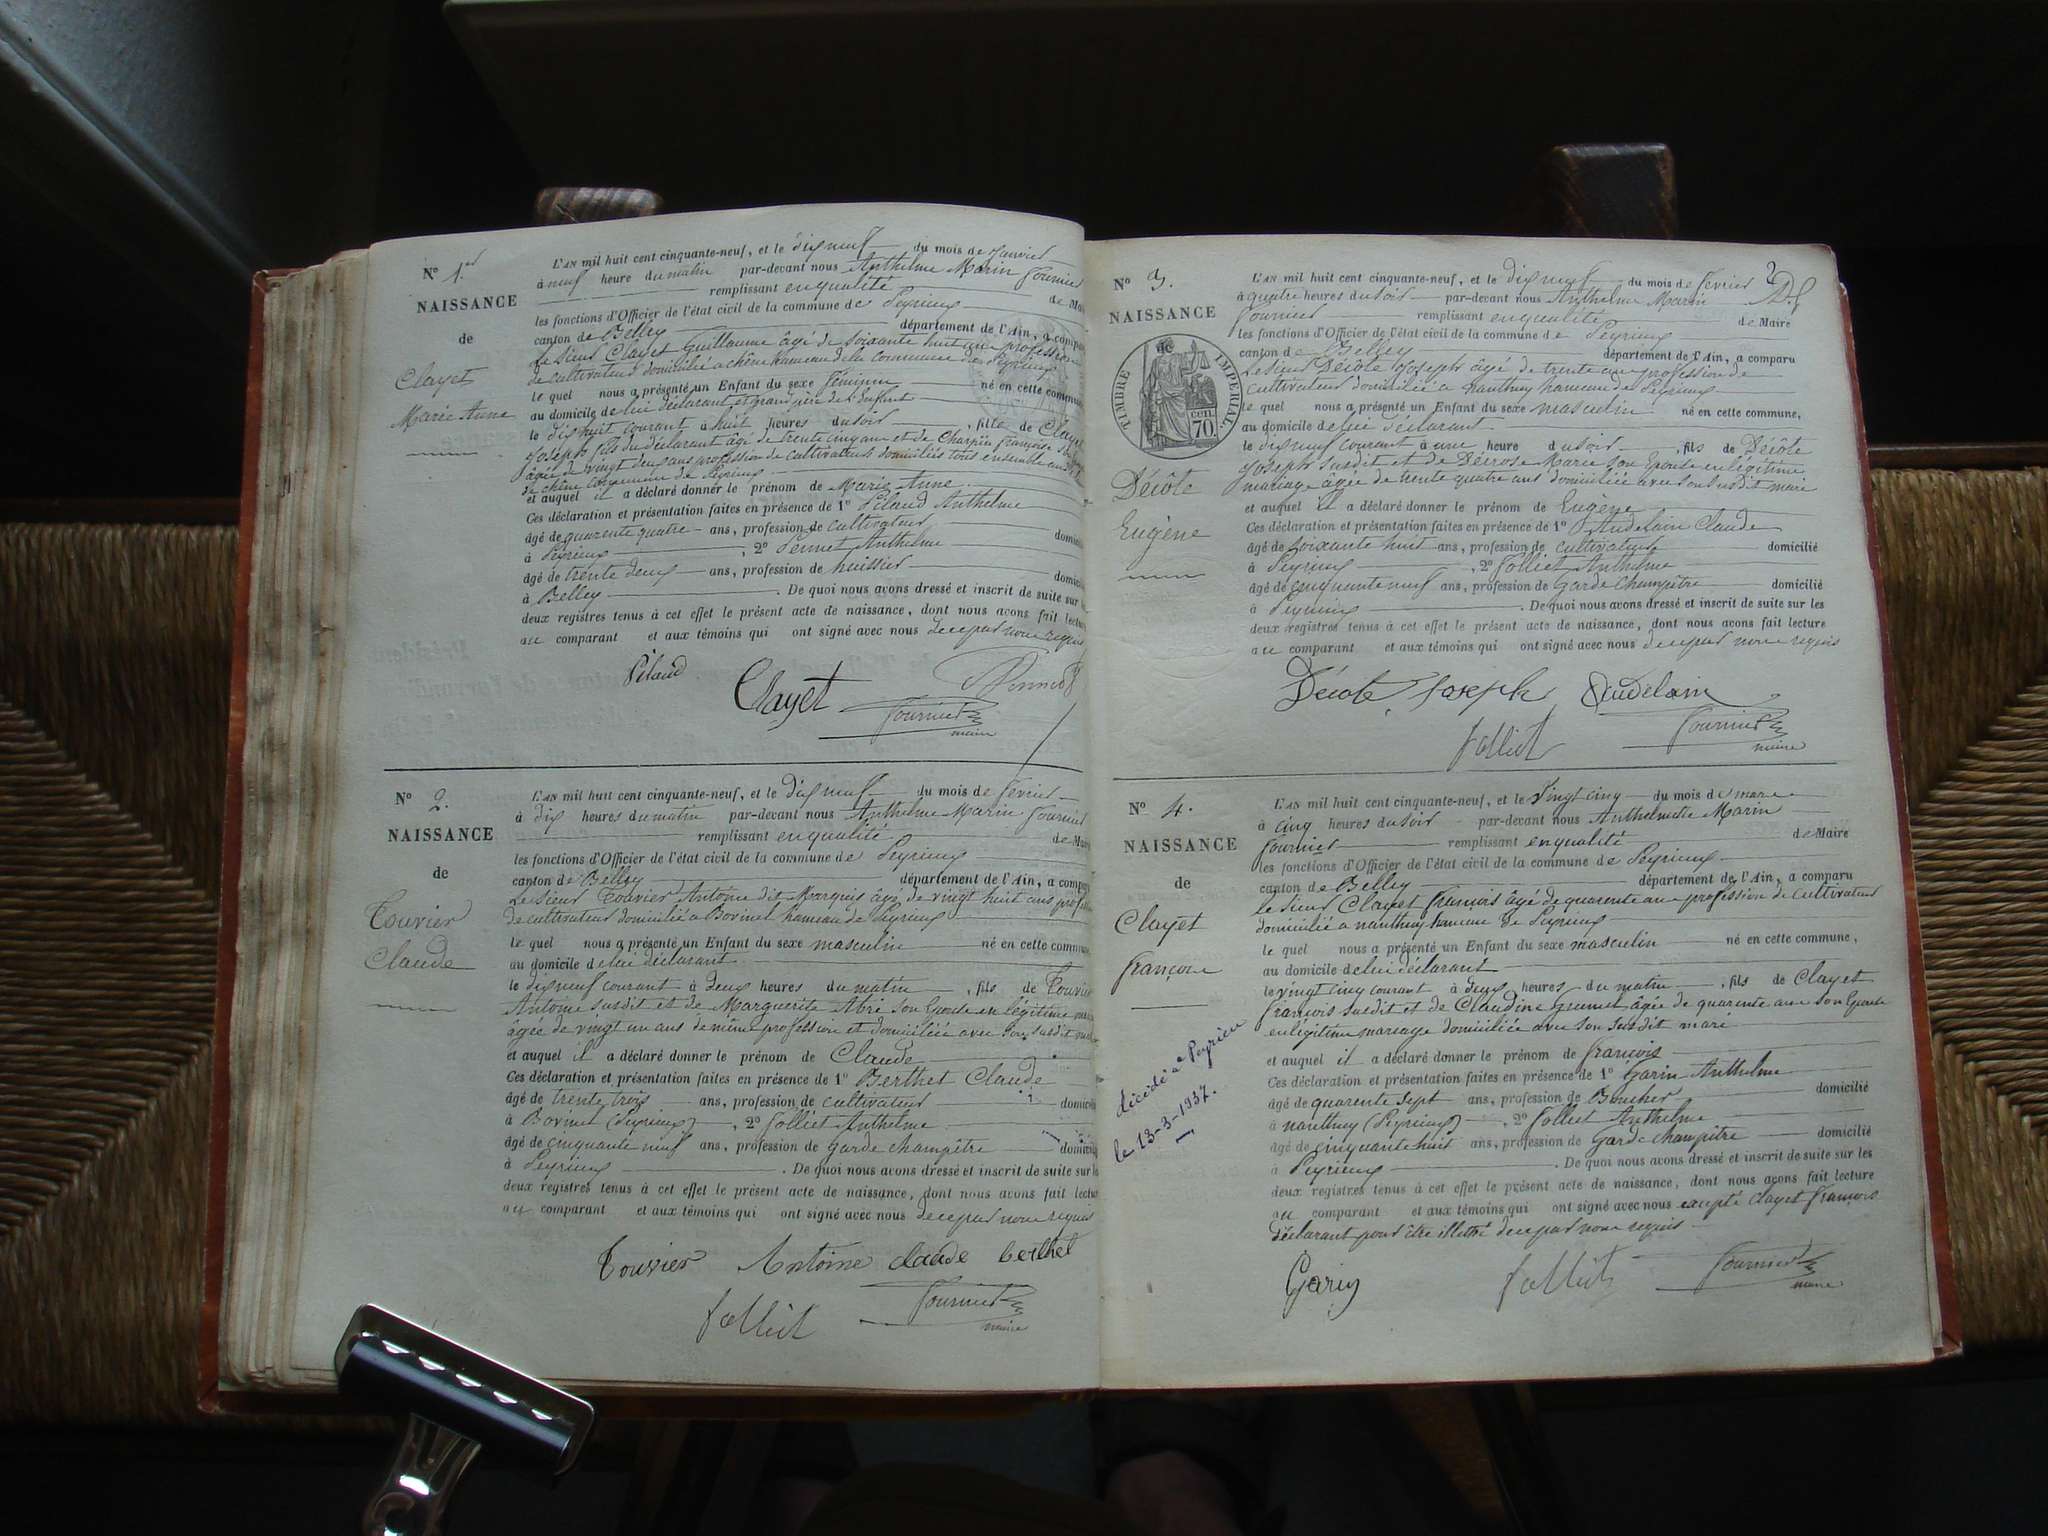 N° 1.er
NAISSANCE
de
Clayet
Marie Anne
L'AN mil huit cent cinquante-neuf, et le dix neuf du mois de Janvier
à neuf heure du matin par-devant nous Anthelme Marin Fournier
remplissant en qualité de Maire
les fonctions d'Officier de l'état civil de la commune de Peyrieux
canton de Belley département de l'Ain, a comparu
Le sieur Clayet Guillaume âgé de soixante huit ans profession
de cultivateur domicilié a chêne hameau de la commune de Peyrieux
le quel nous a présenté un Enfant du sexe féminin né en cette commune
au domicile de lui déclarant et grand père de l'Enfant
le dix huit courant à huit heures du soir , fille de Clayet
Joseph fils du déclarant âgé de trente cinq ans et de Charpin françoise
âgée de vingt deux ans profession de cultivateurs domiciliés tous ensemble
de chêne commune de Peyrieux
et auquel il a déclaré donner le prénom de Marie Anne
Ces déclaration et présentation faites en présence de 1° Pilaud Anthelme
âgé de quarente quatre ans, profession de cultivateur domicilié
à Peyrieux , 2° Pennet Anthelme
âgé de trente deux ans, profession de huissier domicilié
à Belley . De quoi nous avons dressé et inscrit de suite sur les
deux registres tenus à cet effet le présent acte de naissance, dont nous avons fait lecture
au comparant et aux témoins qui ont signé avec nous de ce par nous requis
Pilaud Clayet
Fournier
maire
N° 2.
NAISSANCE
de
Touvier
Claude
L'AN mil huit cent cinquante-neuf, et le dix neuf du mois de février
à dix heures du matin par-devant nous Anthelme Marin Fournier
remplissant en qualité de Maire
les fonctions d'Officier de l'état civil de la commune de Peyrieux
canton de Belley département de l'Ain, a comparu
Le sieur Touvier Antoine dit Marquis âgé de vingt huit ans profession
de cultivateur domicilié a Bovinel hameau de Peyrieux
le quel nous a présenté un Enfant du sexe masculin né en cette commune
au domicile de lui déclarant
le dix neuf courant à deux heures du matin , fils de Touvier
Antoine susdit et de Marguerite Abri son Epouse en légitime
âgée de vingt un ans de même profession et domiciliée avec son susdit
et auquel il a déclaré donner le prénom de Claude
Ces déclaration et présentation faites en présence de 1° Berthet Claude
âgé de trente trois ans, profession de cultivateur domicilié
à Bovinel (Peyrieux) , 2° Folliet Anthelme
âgé de cinquante neuf ans, profession de Garde champêtre domicilié
à Peyrieux . De quoi nous avons dressé et inscrit de suite sur les
deux registres tenus à cet effet le présent acte de naissance, dont nous avons fait lecture
au comparant et aux témoins qui ont signé avec nous de ce par nous requis
Touvier Antoine claude berthet
folliet Fournier
maire
2
N° 3.
NAISSANCE
TIMBRE IMPERIAL
CENT. 70.
Décôte
Eugène
L'AN mil huit cent cinquante-neuf, et le dix neuf du mois de février
à quatre heures du soir par-devant nous Anthelme Marin
Fournier remplissant en qualité de Maire
les fonctions d'Officier de l'état civil de la commune de Peyrieux
canton de Belley département de l'Ain, a comparu
Le sieur Décôte Joseph âgé de trente ans profession de
cultivateur domicilié a nanthuy hameau de Peyrieux
le quel nous a présenté un Enfant du sexe masculin né en cette commune,
au domicile de lui déclarant
le dix neuf courant à une heure du soir , fils de Décôte
Joseph susdit et de Décrose Marie son Epouse en légitime
mariage âgée de trente quatre ans domiciliée avec son susdit mari
et auquel il a déclaré donner le prénom de Eugène
Ces déclaration et présentation faites en présence de 1° Audelain Claude
âgé de soixante huit ans, profession de cultivateur domicilié
à Peyrieux , 2° Folliet Anthelme
âgé de cinquante neuf ans, profession de Garde champêtre domicilié
à Peyrieux . De quoi nous avons dressé et inscrit de suite sur les
deux registres tenus à cet effet le présent acte de naissance, dont nous avons fait lecture
au comparant et aux témoins qui ont signé avec nous de ce par nous requis
Décote Joseph Audelain
folliet Fournier
maire
N° 4.
NAISSANCE
de
Clayet
françois
décédé a Peyrieu
le 13-3-1937.
L'AN mil huit cent cinquante-neuf, et le Vingt cinq du mois de mars
à cinq heures du soir par-devant nous Anthelme Marin
Fournier remplissant en qualité de Maire
les fonctions d'Officier de l'état civil de la commune de Peyrieux
canton de Belley département de l'Ain, a comparu
le sieur Clayet françois âgé de quarente ans profession de cultivateur
domicilié a nanthuy hameau de Peyrieux
le quel nous a présenté un Enfant du sexe masculin né en cette commune,
au domicile de lui déclarant
le vingt cinq courant à deux heures du matin , fils de Clayet
françois susdit et de Claudine âgée de quarente ans son Epouse
en légitime mariage domiciliée avec son susdit mari
et auquel il a déclaré donner le prénom de françois
Ces déclaration et présentation faites en présence de 1° Garin Anthelme
âgé de quarente sept ans, profession de Boucher domicilié
à nanthuy (Peyrieux) , 2° Folliet Anthelme
âgé de cinquante huit ans, profession de Garde champêtre domicilié
à Peyrieux . De quoi nous avons dressé et inscrit de suite sur les
deux registres tenus à cet effet le présent acte de naissance, dont nous avons fait lecture
au comparant et aux témoins qui ont signé avec nous excepté Clayet françois
déclarant pour être illettré de ce par nous requis
Garin folliet Fournier
maire